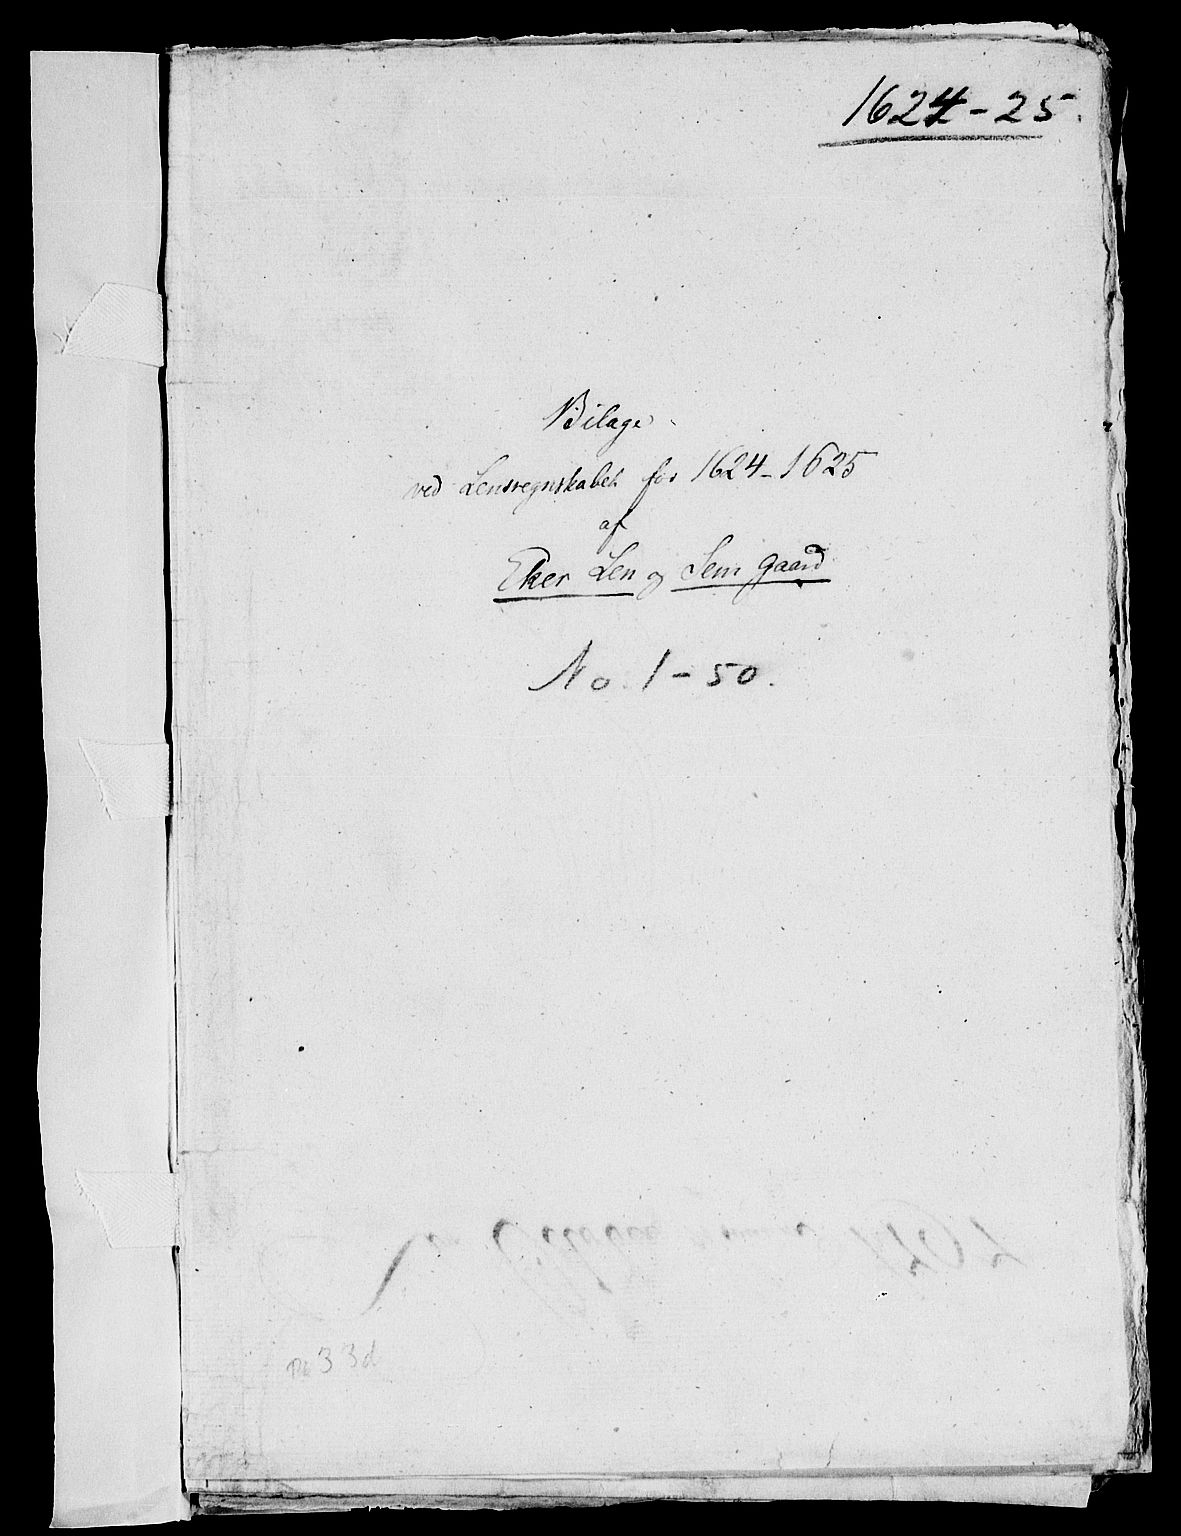 1624-25.
Bilage
ved Lensregnskabet for 1624-1625
af
Eker Len og Sem gaard
No. 1-50.
33d